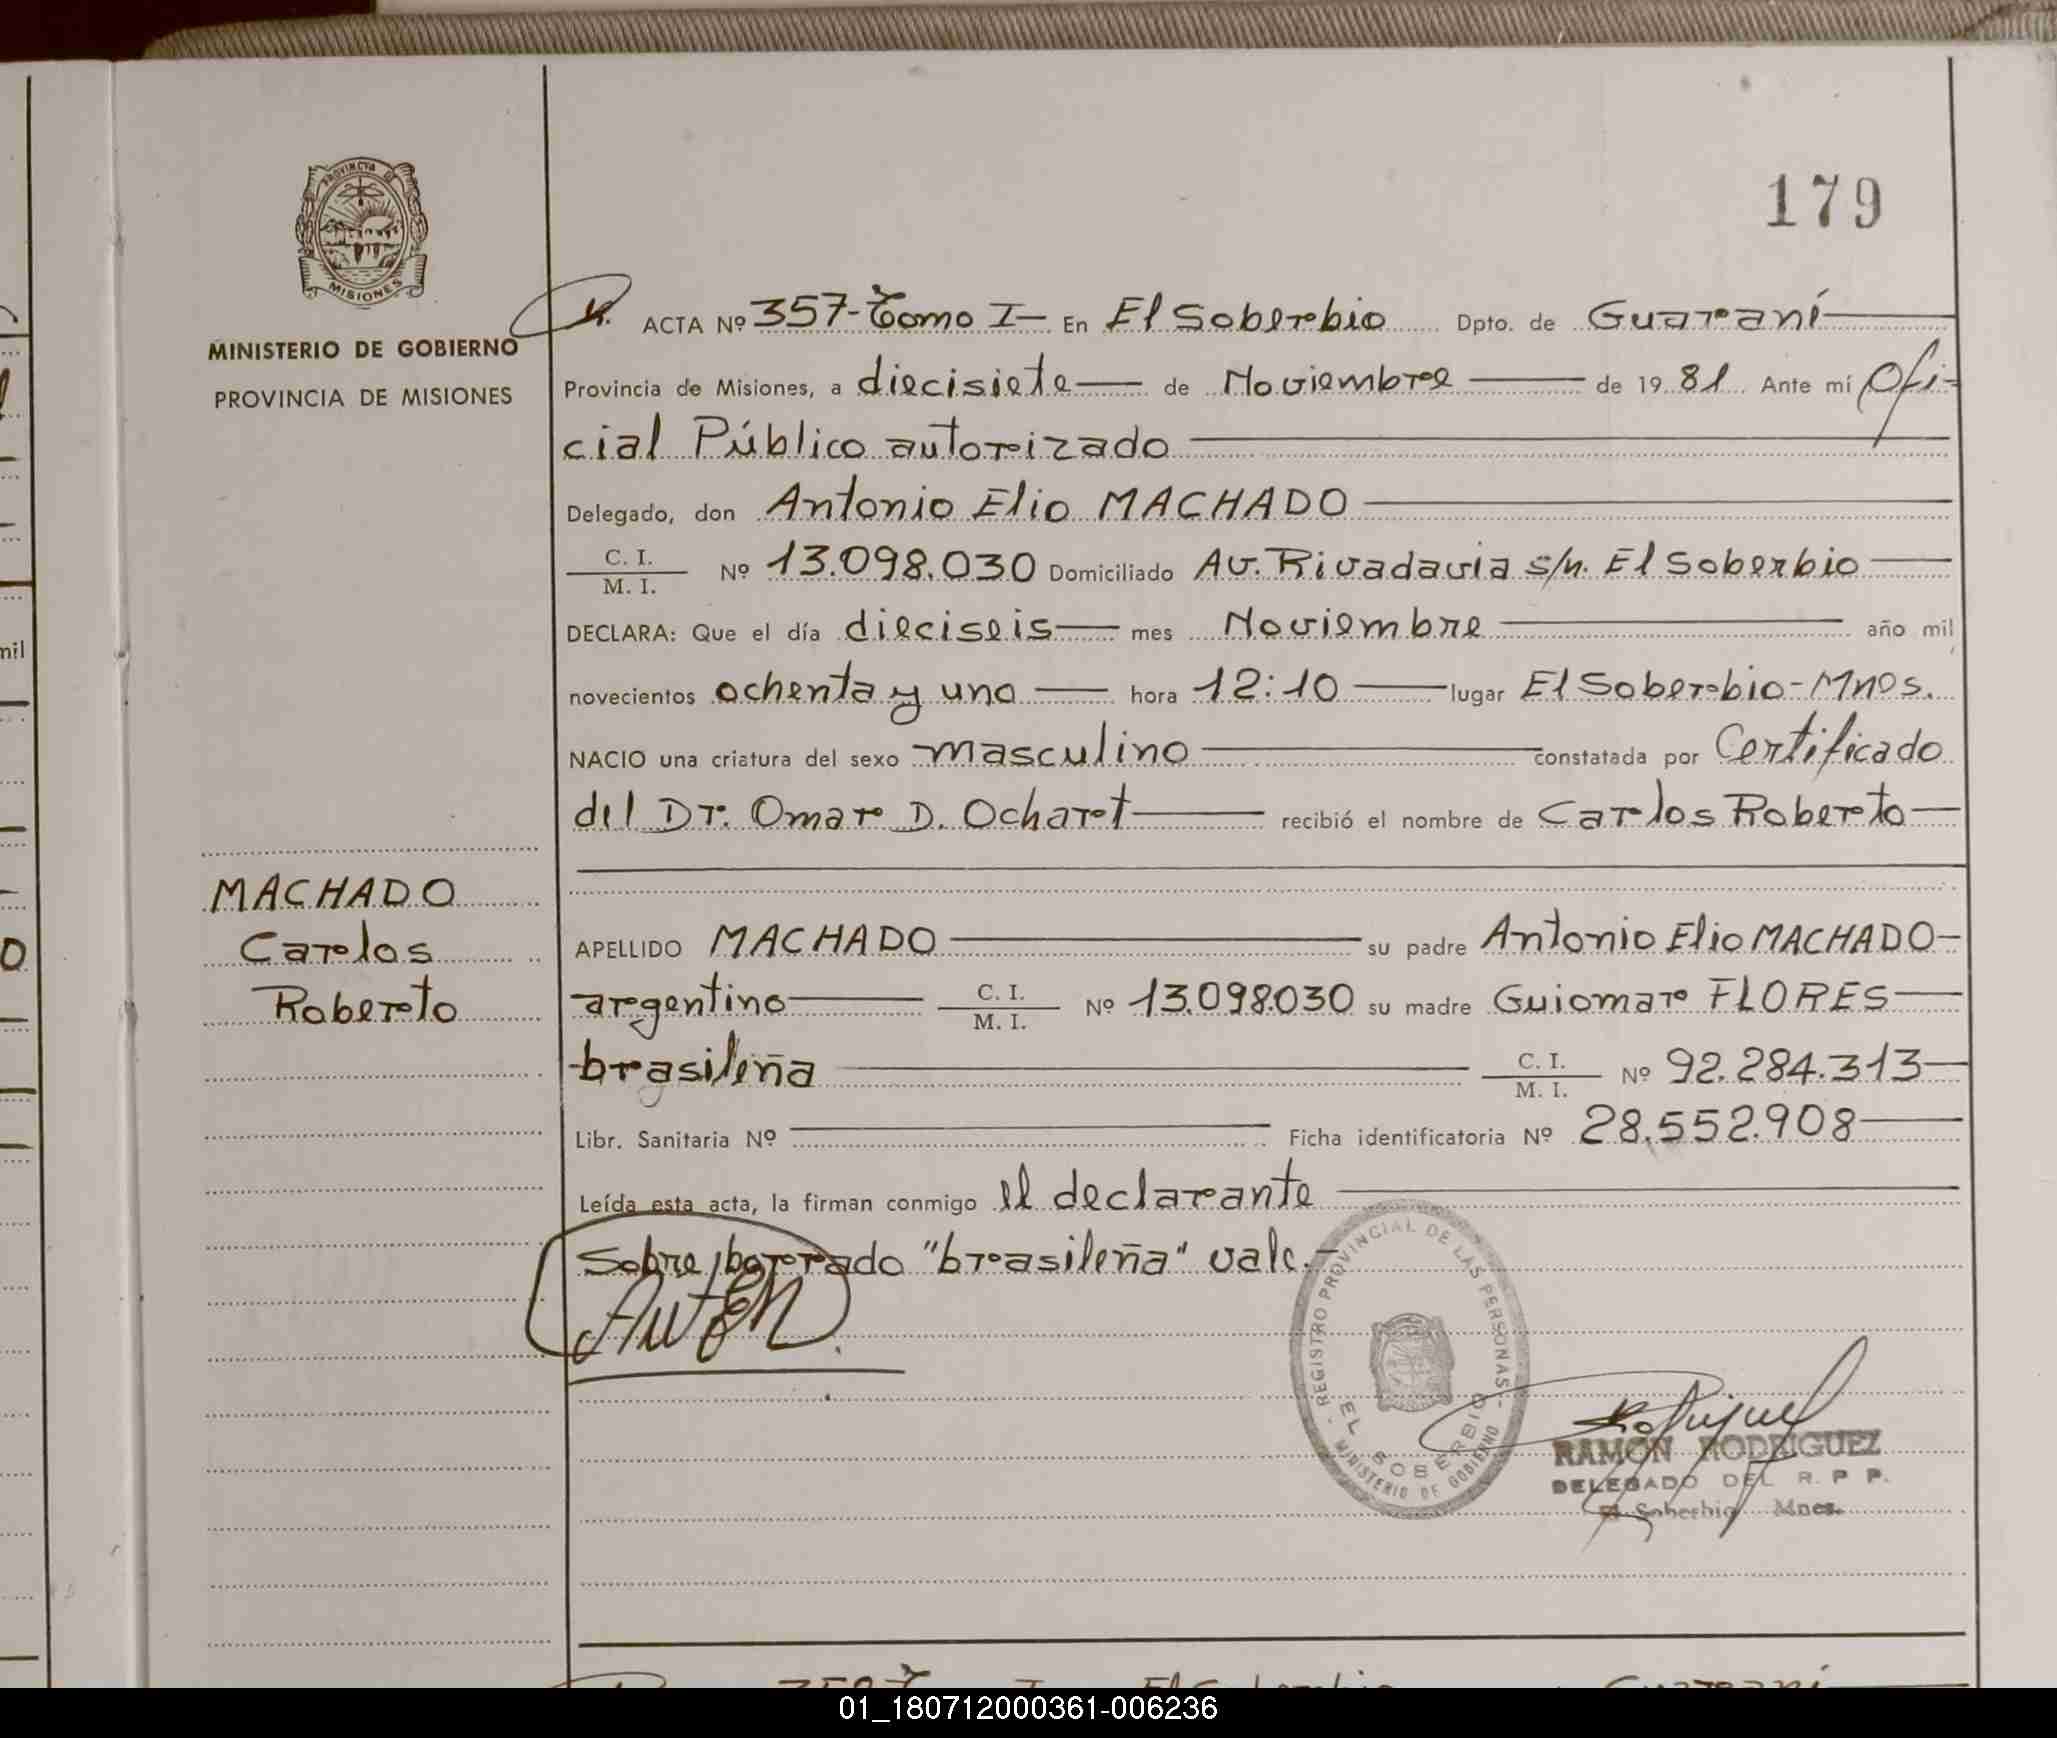 179
PROVINCIA DE
MISIONES
MINISTERIO DE GOBIERNO
PROVINCIA DE MISIONES
ACTA Nº 357-Tomo I- En El Soberbio Dpto. de Guaraní
Provincia de Misiones, a diecisiete de Noviembre de 19 81 Ante mí Ofi-
cial Público autorizado
Delegado, don Antonio Elio MACHADO
C. I.
M. I.
Nº 13.098.030 Domiciliado Av. Rivadavia s/n. El Soberbio
DECLARA: Que el día dieciseis mes Noviembre año mil
novecientos ochenta y uno hora 12:10 lugar El Soberbio-Mnes.
NACIO una criatura del sexo masculino constatada por Certificado
del Dr. Omar D. Ocharot recibió el nombre de Carlos Roberto
MACHADO
Carlos
Roberto
APELLIDO MACHADO su padre Antonio Elio MACHADO-
argentino C. I. / M. I. Nº 13.098.030 su madre Guiomar FLORES
brasileña C. I. / M. I. Nº 92.284.313
Libr. Sanitaria Nº Ficha identificatoria Nº 28.552.908
Leída esta acta, la firman conmigo el declarante
Sobre borrado "brasileña" vale.-
REGISTRO PROVINCIAL DE LAS PERSONAS
EL SOBERBIO
MINISTERIO DE GOBIERNO
RAMON RODRIGUEZ
DELEGADO DEL R. P P.
El Soberbio Mnes.
mil
O
01_180712000361-006236